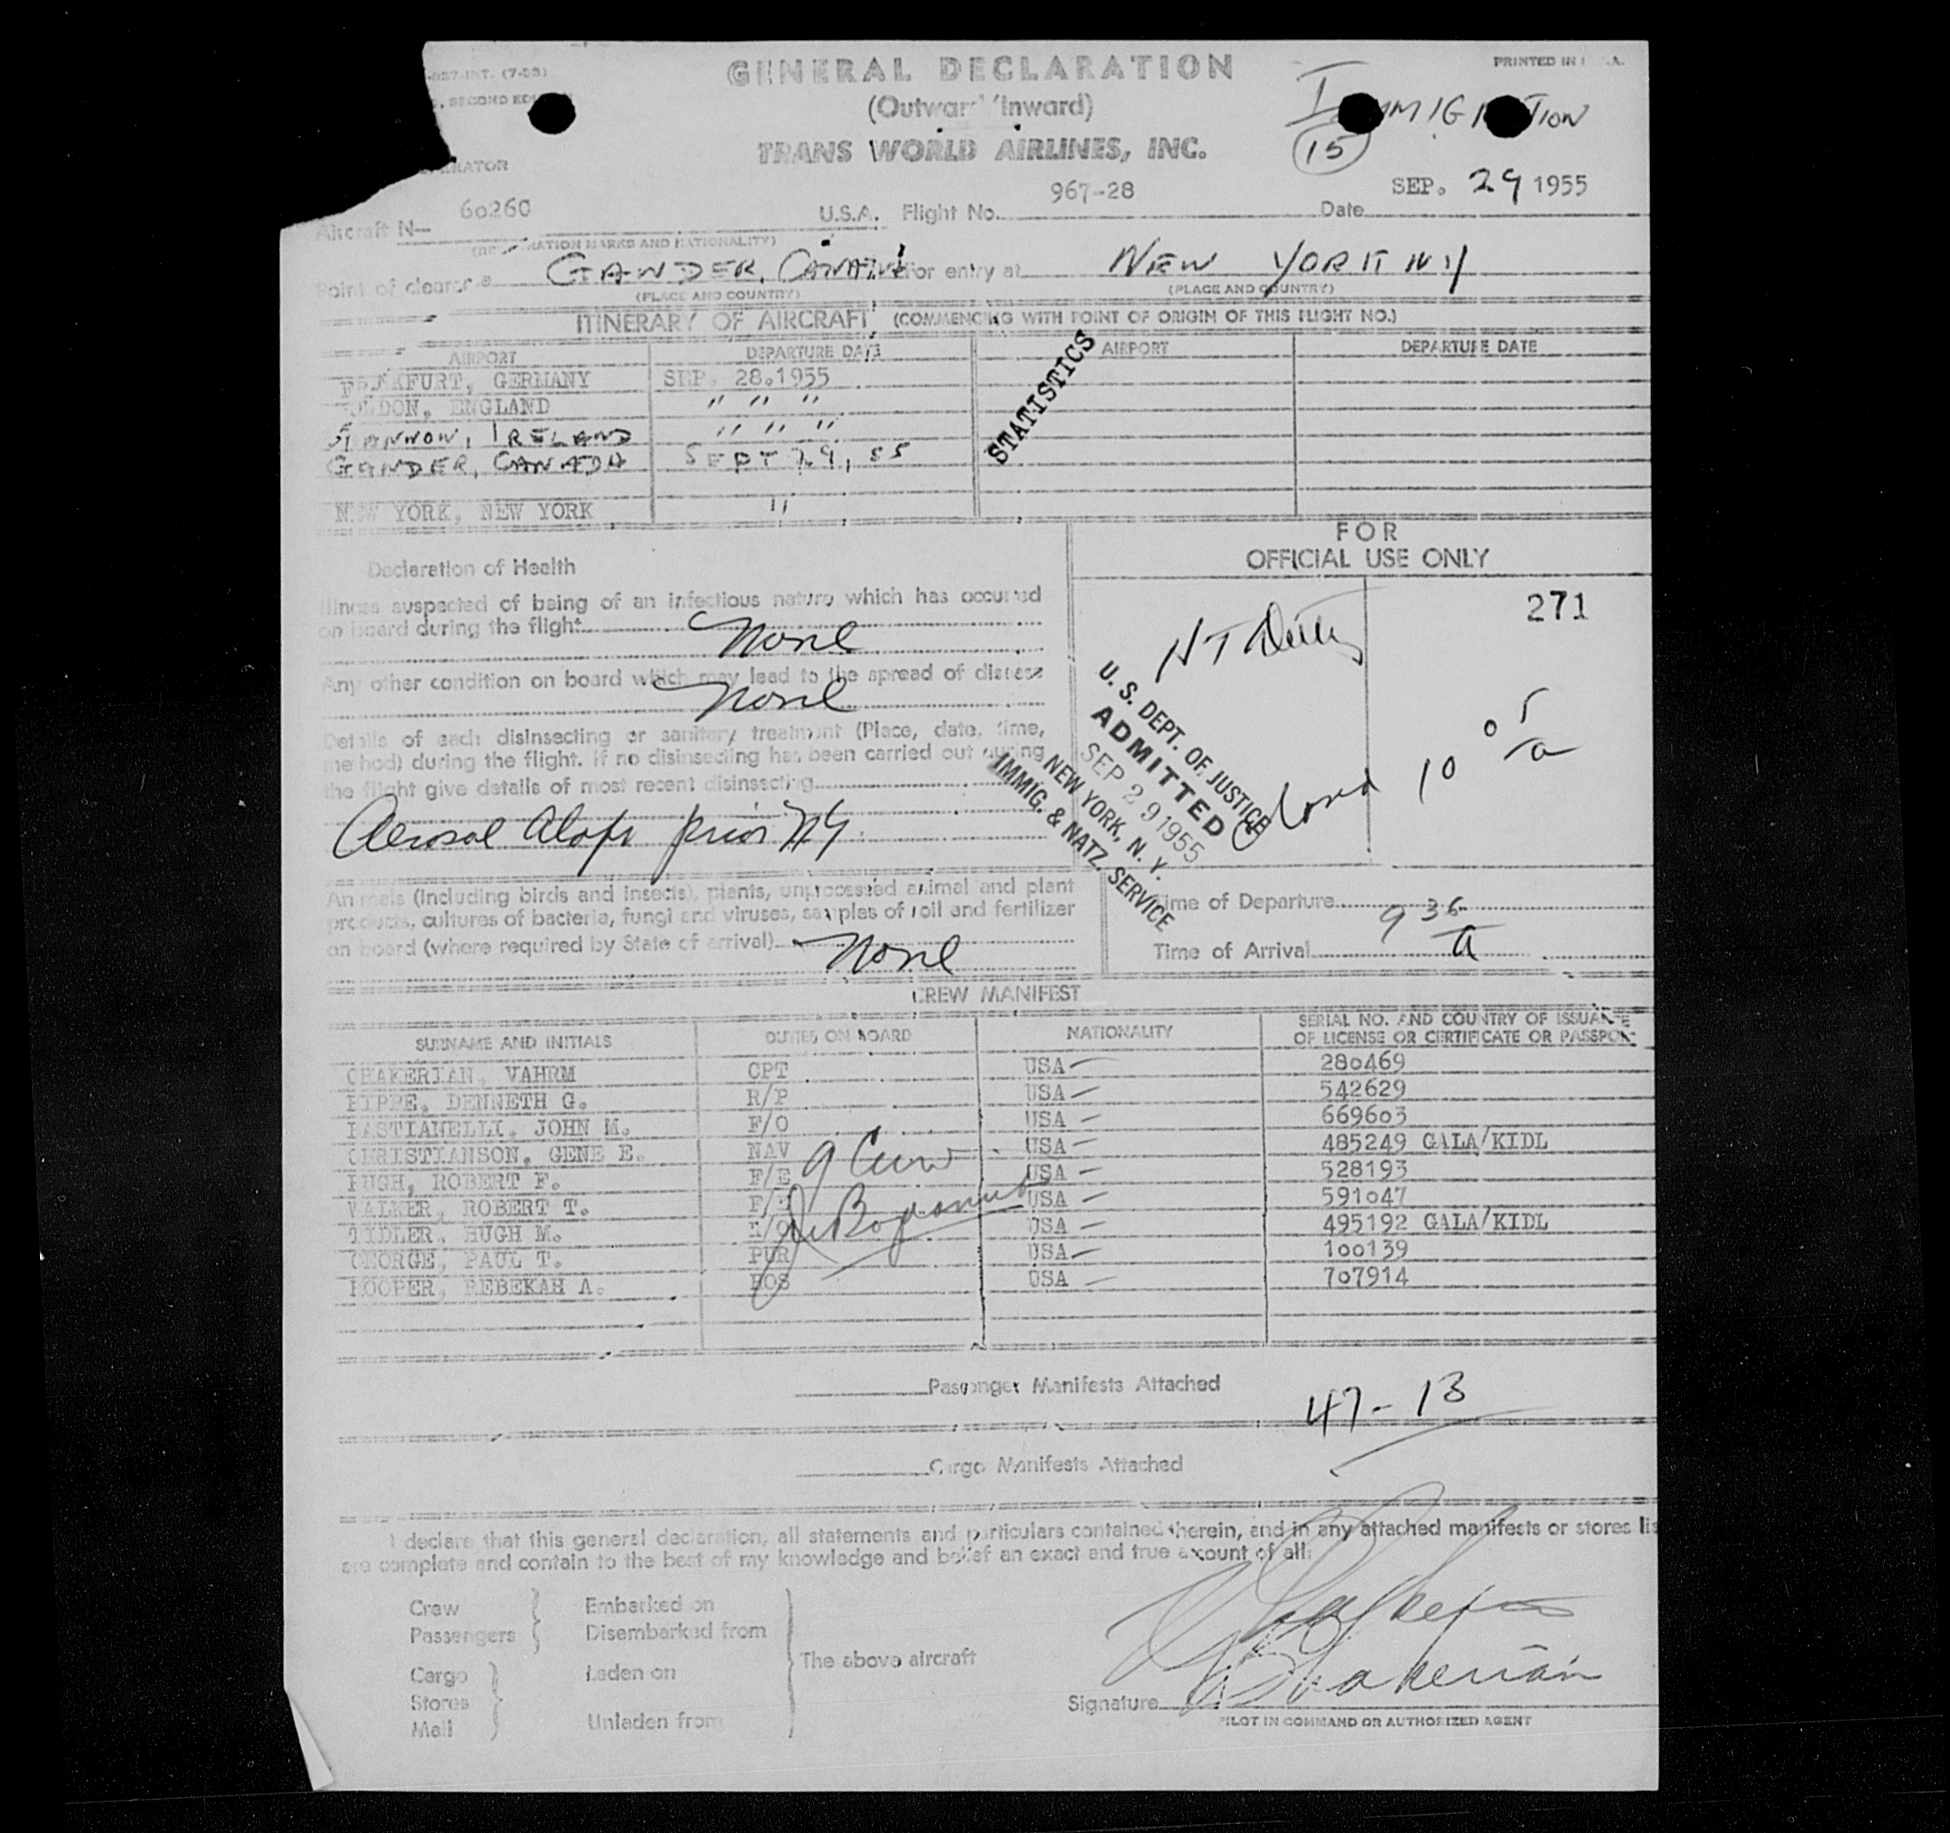 -827-INT. (7-53)
PRINTED IN
GENERAL DECLARATION
SECOND
(Outward/Inward)
IMMIGRATION
TRANS WORLD AIRLINES, INC.
15
967-28
SEP. 29 1955
Aircraft N- 60260 U.S.A. Flight No. Date
(REGISTRATION MARKS AND NATIONALITY)
Point of clearance GANDER, CANADA For entry at NEW YORK NY
(PLACE AND COUNTRY) (PLACE AND COUNTRY)
ITINERARY OF AIRCRAFT (COMMENCING WITH POINT OF ORIGIN OF THIS FLIGHT NO.)
AIRPORT DEPARTURE DATE AIRPORT DEPARTURE DATE
FRANKFURT, GERMANY SEP. 28.1955
LONDON, ENGLAND " " "
SHANNON, IRELAND " " "
GANDER, CANADA SEPT 29, 55
NEW YORK, NEW YORK "
STATISTICS
FOR
OFFICIAL USE ONLY
271
Declaration of Health
Illness suspected of being of an infectious nature which has occurred
on board during the flight
None
Any other condition on board which may lead to the spread of disease
None
Details of each disinsecting or sanitary treatment (Place, date, time,
method) during the flight. If no disinsecting has been carried out during
the flight give details of most recent disinsecting
Aerosol prior NY
U. S. DEPT. OF JUSTICE
ADMITTED
SEP 29 1955
NEW YORK, N. Y.
IMMIG. & NATZ. SERVICE
10 05 a
Animals (including birds and insects), plants, unprocessed animal and plant
products, cultures of bacteria, fungi and viruses, samples of soil and fertilizer
on board (where required by State of arrival)
None
Time of Departure
Time of Arrival 9 36 a
CREW MANIFEST
SURNAME AND INITIALS DUTIES ON BOARD NATIONALITY SERIAL NO. AND COUNTRY OF ISSUANCE
OF LICENSE OR CERTIFICATE OR PASSPORT
CHAKERIAN, VAHRM CPT USA 280469
DENNETH G. R/P USA 542629
BASTIANELLI, JOHN M. F/O USA 669603
CHRISTIANSON, GENE E. NAV USA 485249 GALA/KIDL
PUGH, ROBERT F. F/E USA 528193
WALKER, ROBERT T. USA 591047
HUGH M. USA 495192 GALA/KIDL
GEORGE, PAUL T. PUR USA 100139
HOOPER, REBEKAH A. HOS USA 707914
9 Crew
Passenger Manifests Attached
47-13
Cargo Manifests Attached
I declare that this general declaration, all statements and particulars contained therein, and in any attached manifests or stores lis
are complete and contain to the best of my knowledge and belief an exact and true account of all:
Crew Embarked on
Passengers Disembarked from
The above aircraft
Cargo Laden on
Stores
Mail Unladen from
Signature Chakerian
PILOT IN COMMAND OR AUTHORIZED AGENT